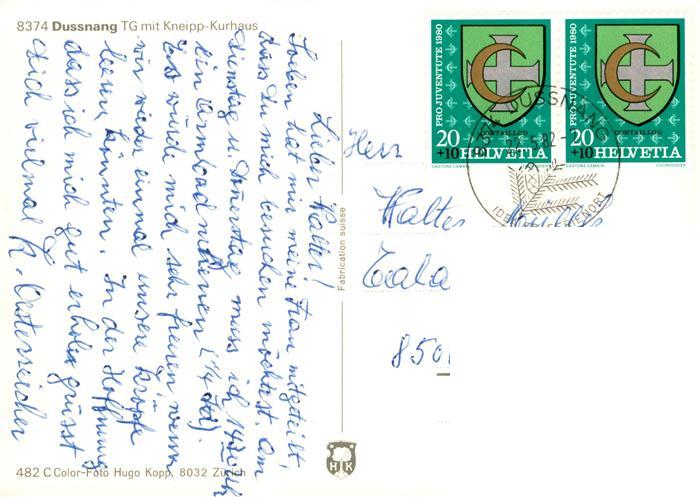 8374 Dussnang TG mit Kneipp-Kurhaus
Lieber Walter!
Soeben hat mir meine Frau mitgeteilt,
dass Du mich besuchen möchtest. Am
Dienstag u. Donnerstag muss ich 14.00 Uhr
ein Armbad nehmen (1/4 Std).
Es würde mich sehr freuen wenn
wir wieder einmal unsere Köpfe
leeren könnten. In der Hoffnung
dass ich dich gut erholt grüsst
Dich vielmal K. Oesterreicher
Fabrication suisse
482 C Color-Foto Hugo Kopp, 8032 Zürich
HK
PRO JUVENTUTE 1980
CORTAILLOD
20
+10 HELVETIA
GASTONE CAMBIN COURVOISIER
PRO JUVENTUTE 1980
CORTAILLOD
20
+10 HELVETIA
GASTONE CAMBIN COURVOISIER
DUSSNANG
5.82
IDEALER FERIENORT
Herr
Walter
850